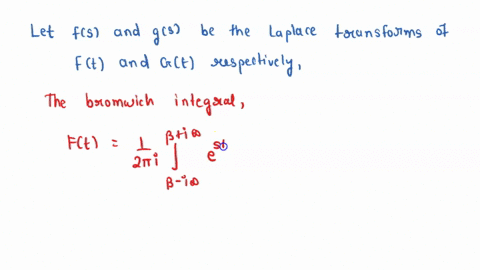 Let f(s) and g(s) be the Laplace transforms of
F(t) and G(t) respectively,
The bromwich integral,
F(t) = 1/2πi ∫_{β-i∞}^{β+i∞} e^{st}